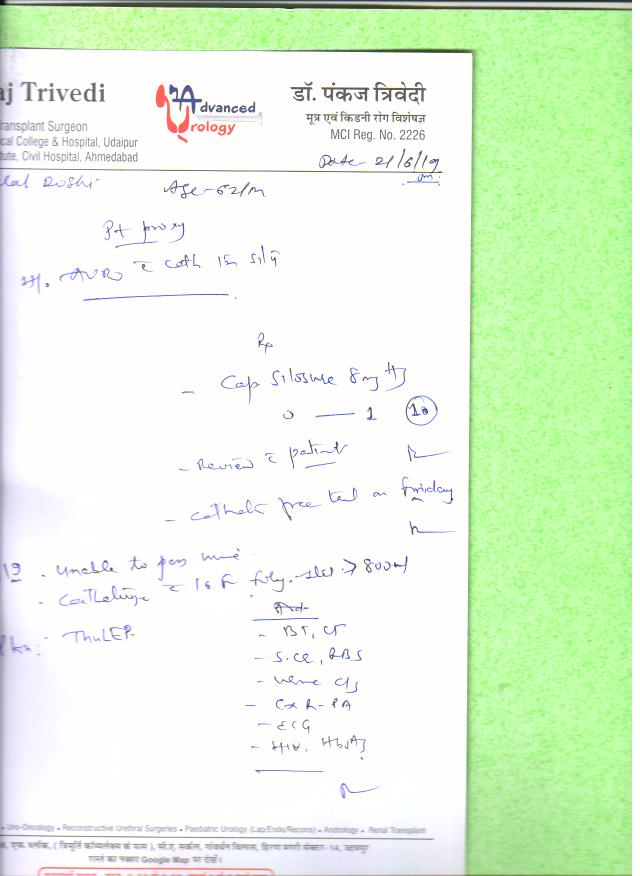 aj Trivedi
Advanced
Urology
डॉ. पंकज त्रिवेदी
मूत्र एवं किडनी रोग विशेषज्ञ
MCI Reg. No. 2226
ransplant Surgeon
cal College & Hospital, Udaipur
tute, Civil Hospital, Ahmedabad
Date 21/6/19
lal Doshi
Age-62/M
Pt proxy
Rp
- Cap Silosure 8mg
0 — 1 (10)
- Review c patient
- Catheter free trial on Friday
19 . Unable to pass urine
- Catheterize c 16 F foley. → 800ml
Plan: ThuLEP.
Adv
- BT, CT
- S.CR, RBS
- Urine C/S
- CXR-PA
- ECG
- HIV, HbsAg
• Uro-Oncology • Reconstructive Urethral Surgeries • Paediatric Urology (Lap/Endo/Recons) • Andrology • Renal Transplant
एफ. ब्लॉक, ( त्रिमूर्ति कॉम्पलेक्स के पास ), सी.ए. सर्कल, गोवर्धन विलास, हिरण मगरी सेक्टर-14, उदयपुर
रास्ते का नक्शा Google Map पर देखें।